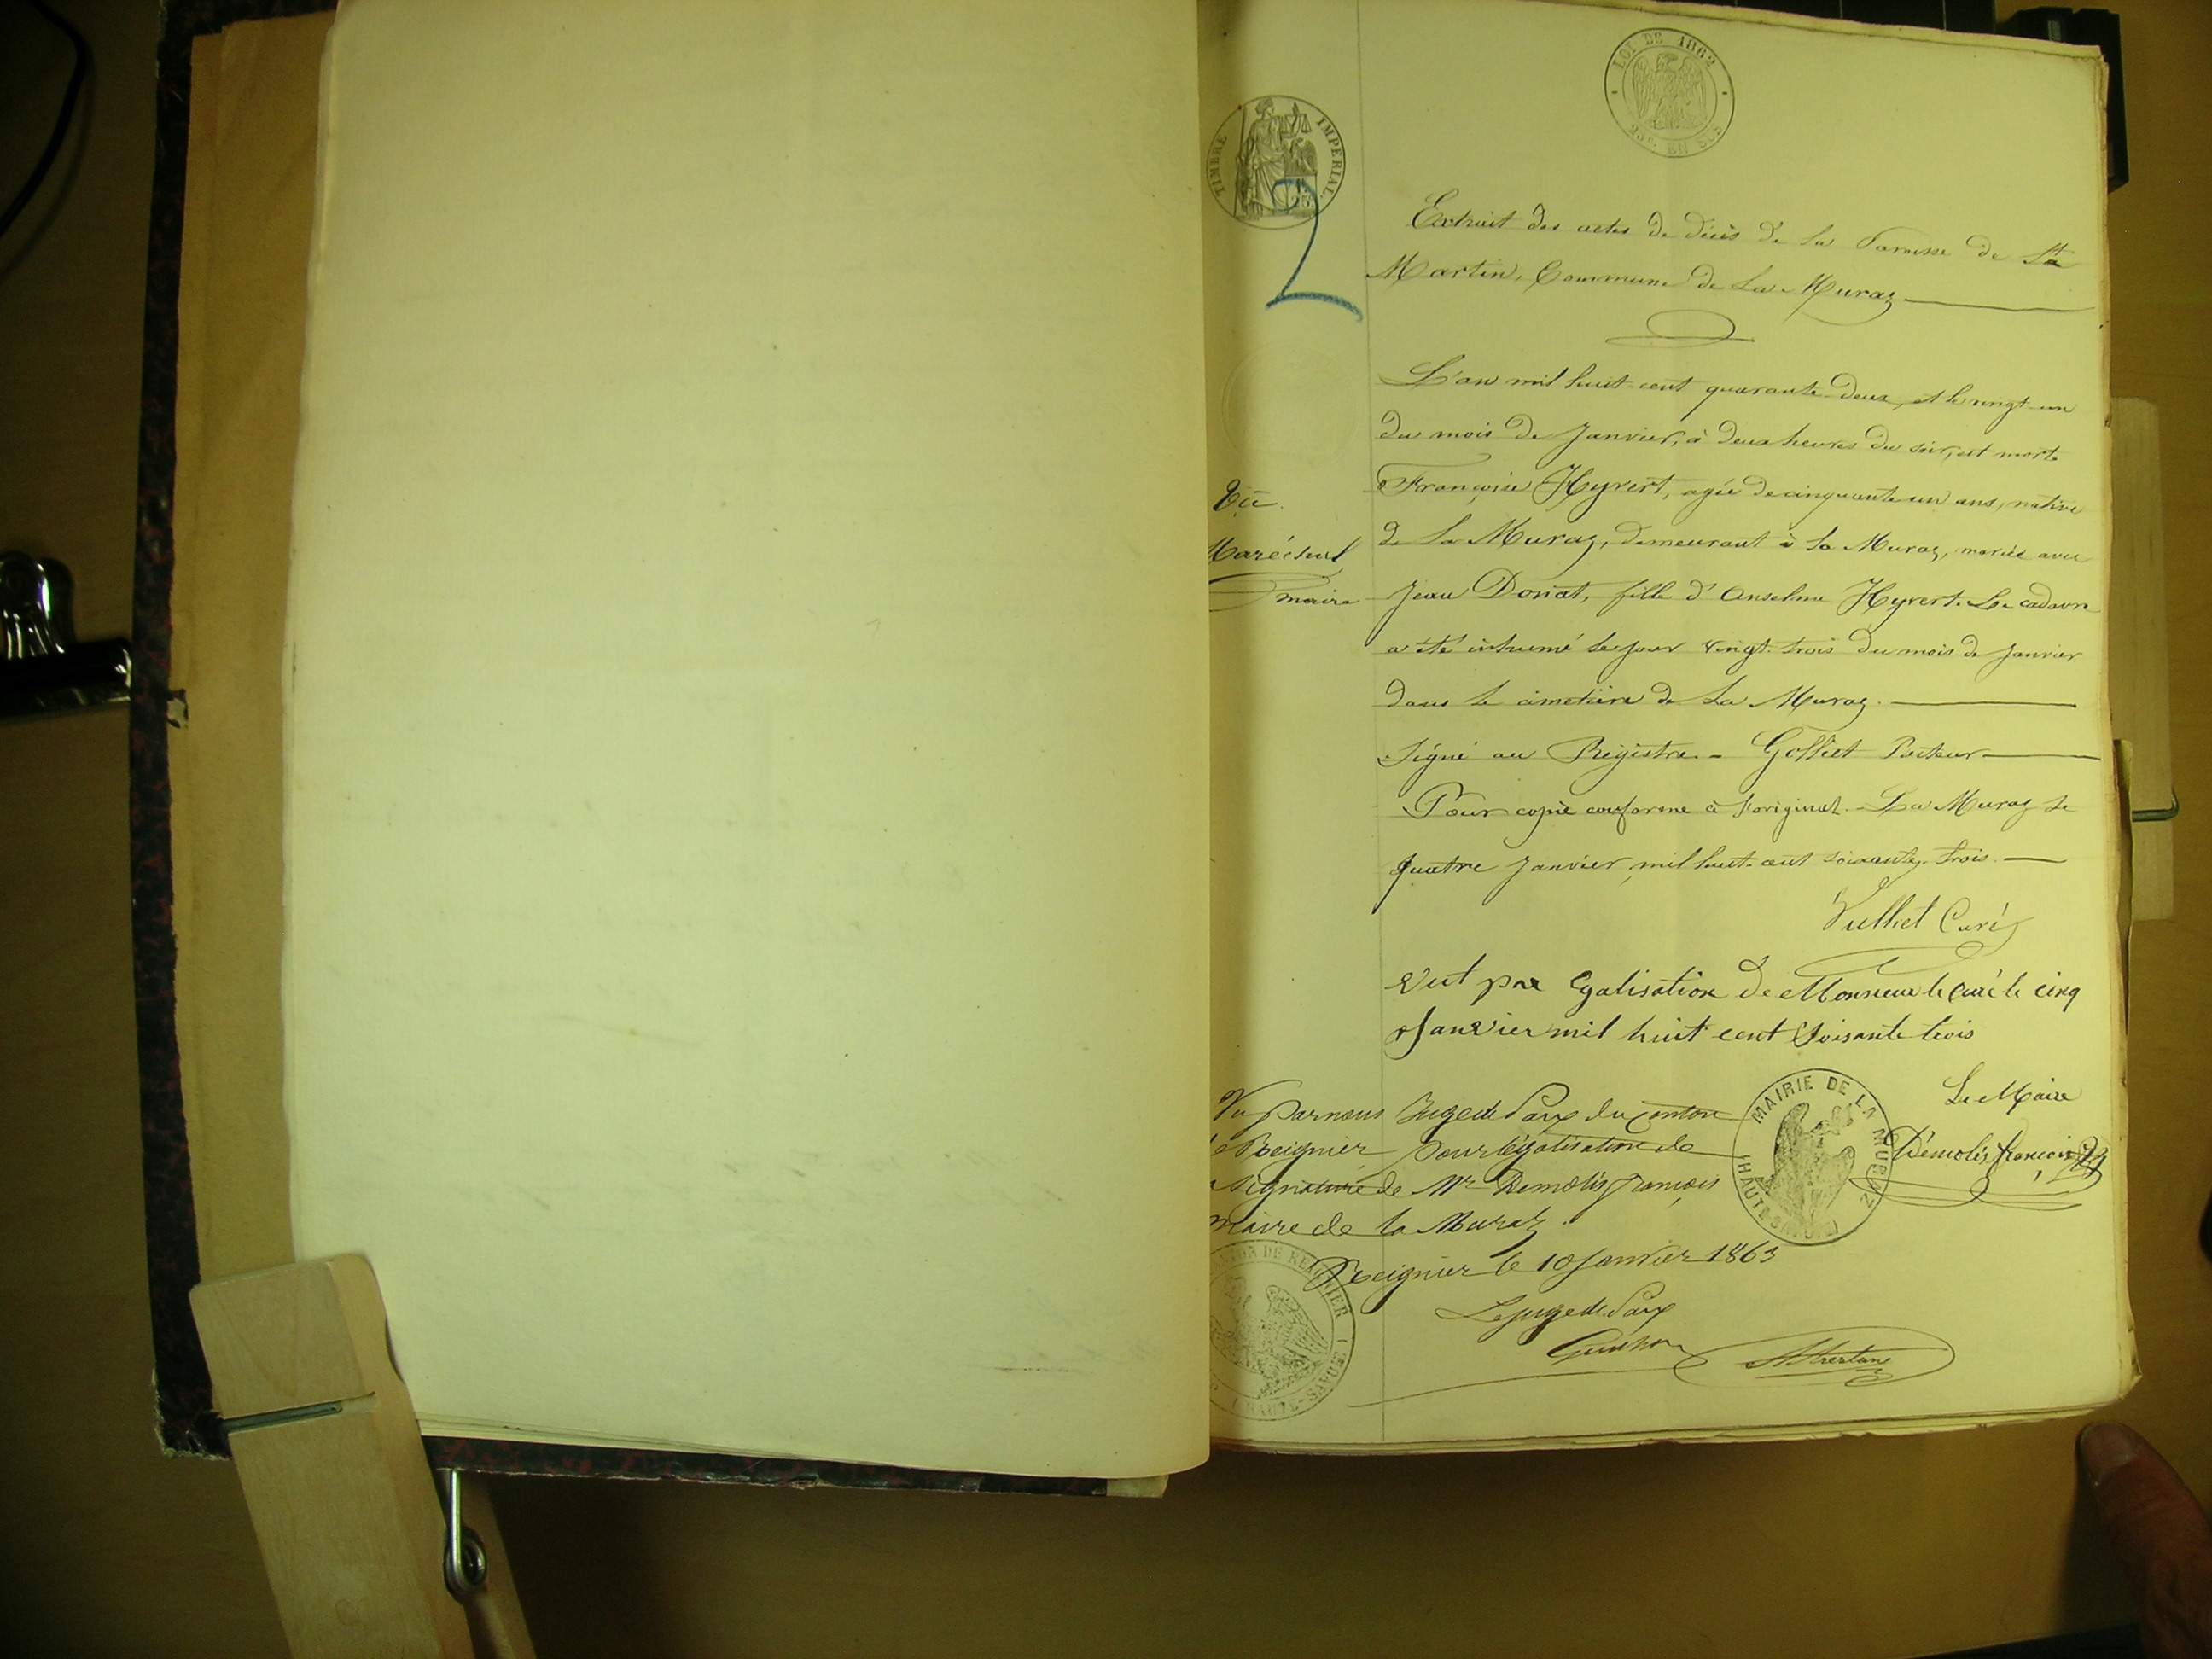 LOI DE 1862
25c. EN SUS
TIMBRE IMPERIAL
2
Extrait des actes de décès de la Paroisse de St
Martin, Commune de La Muraz
L'an mil huit-cent quarante-deux, et le vingt-un
du mois de Janvier, à deux heures du soir, est morte
Françoise Hyvert, agée de cinquante un ans, native
de La Muraz, demeurant à La Muraz, mariée avec
Jean Donat, fille d'Anselme Hyvert. Le cadavre
a été inhumé le jour vingt-trois du mois de Janvier
dans le cimetière de La Muraz.
Signé au Régistre - Golliet Recteur
Pour copie conforme à l'original. - La Muraz le
quatre Janvier mil huit-cent soixante-trois.
Vu
Maréchal
maire
Vulliet Curé
Vut par legalisation de Monsieur le curé le cinq
Janvier mil huit cent soisante trois
Le Maire
Démolis françois
MAIRIE DE LA MURAZ
(HAUTE-SAVOIE)
Vu par nous Juge de Paix du Canton
de Reignier pour légalisation de
la signature de Mr Demolis françois
maire de la Muraz.
Reignier le 10 Janvier 1863
Le juge de Paix
CANTON DE REIGNIER
(HAUTE-SAVOIE)